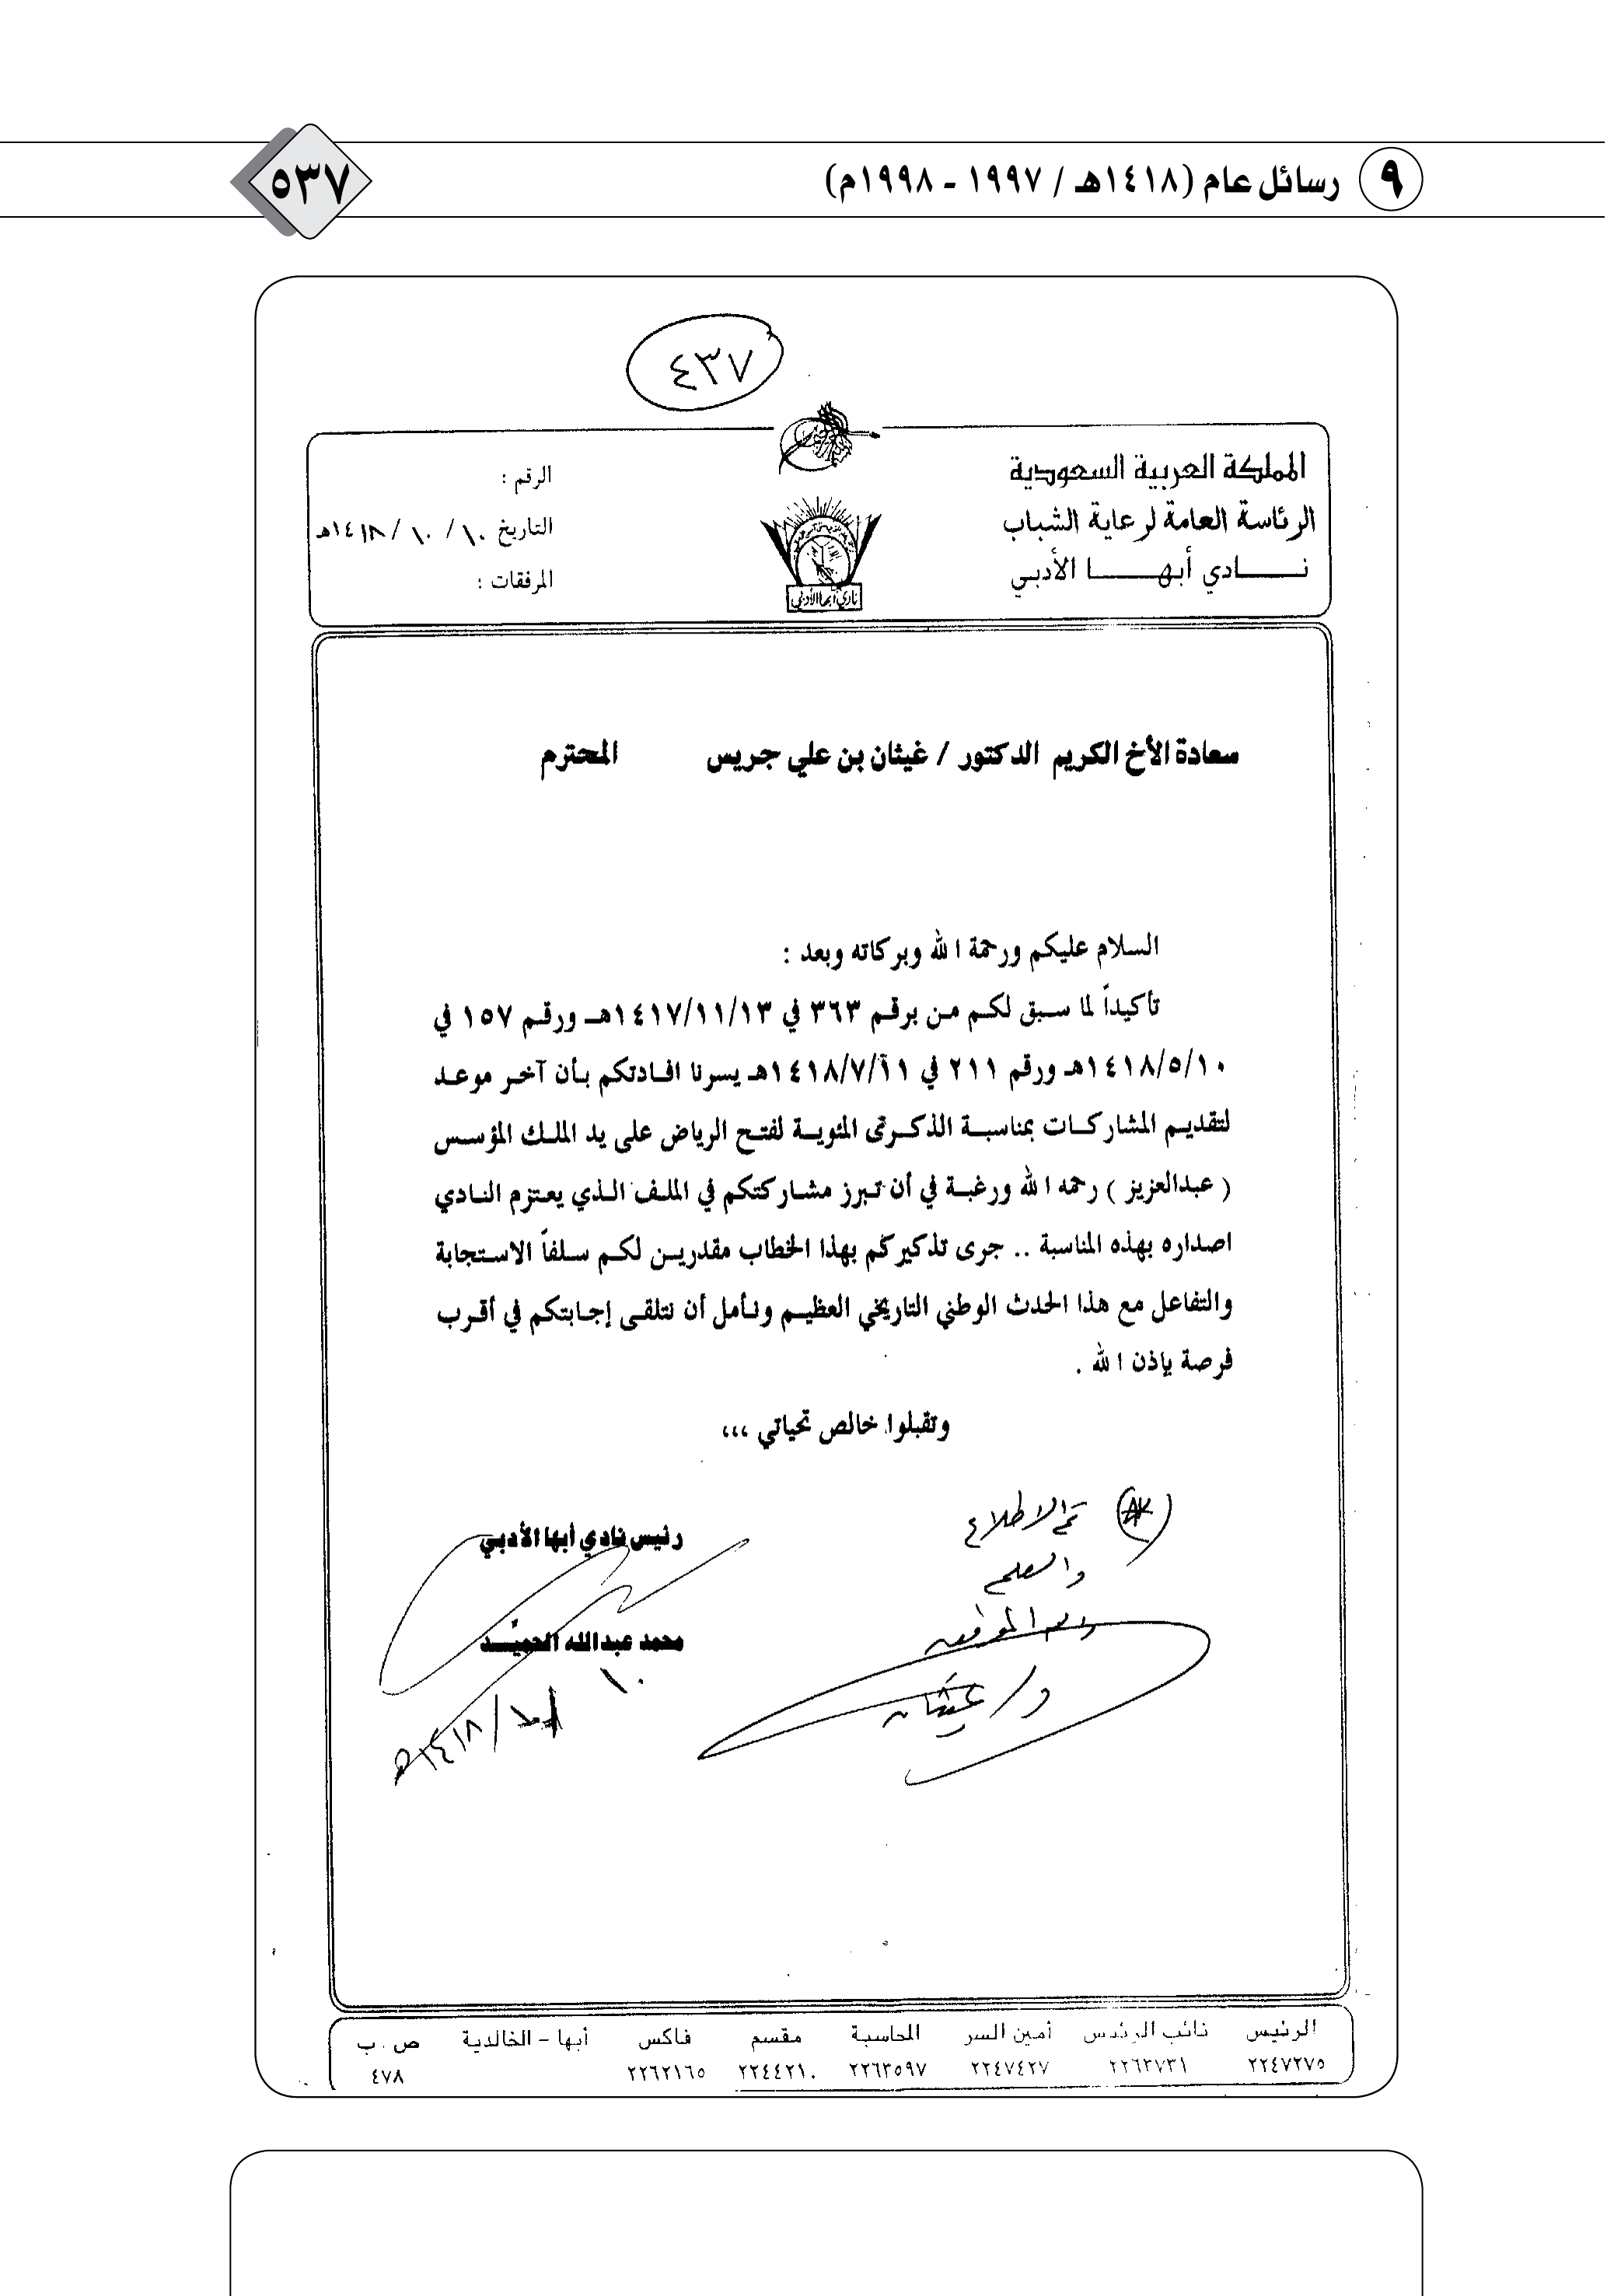 ٩ رسائل عام (١٤١٨هـ / ١٩٩٧ - ١٩٩٨م)
٥٣٧
٤٣٧
المملكة العربية السعودية
الرئاسة العامة لرعاية الشباب
نادي أبها الأدبي
نادي أبها الأدبي
الرقم :
التاريخ ١٠/ ١٠ / ١٤١٨هـ
المرفقات :
سعادة الأخ الكريم الدكتور / غيثان بن علي جريس المحترم
السلام عليكم ورحمة الله وبركاته وبعد :
تأكيداً لما سبق لكم من برقم ٣٦٣ في ١٤١٧/١١/١٣هـ ورقم ١٥٧ في
١٤١٨/٥/١٠هـ ورقم ٢١١ في ١٤١٨/٧/١١هـ يسرنا افادتكم بأن آخر موعد
لتقديم المشاركات بمناسبة الذكرى المئوية لفتح الرياض على يد الملك المؤسس
( عبدالعزيز ) رحمه الله ورغبة في أن تبرز مشاركتكم في الملف الذي يعتزم النادي
اصداره بهذه المناسبة .. جرى تذكيركم بهذا الخطاب مقدرين لكم سلفاً الاستجابة
والتفاعل مع هذا الحدث الوطني التاريخي العظيم ونأمل أن نتلقى إجابتكم في أقرب
فرصة بإذن الله .
وتقبلوا خالص تحياتي ،،،
تم الاطلاع
والعلم
د/ غيثان
رئيس نادي أبها الأدبي
محمد عبدالله الحميّد
١٤١٨هـ
الرئيس نائب الرئيس أمين السر المحاسبة مقسم فاكس أبها - الخالدية ص . ب
٢٢٤٧٢٧٥ ٢٢٦٣٧٣١ ٢٢٤٧٤٢٧ ٢٢٦٣٥٩٧ ٢٢٤٤٢١٠ ٢٢٦٢١٦٥ ٤٧٨